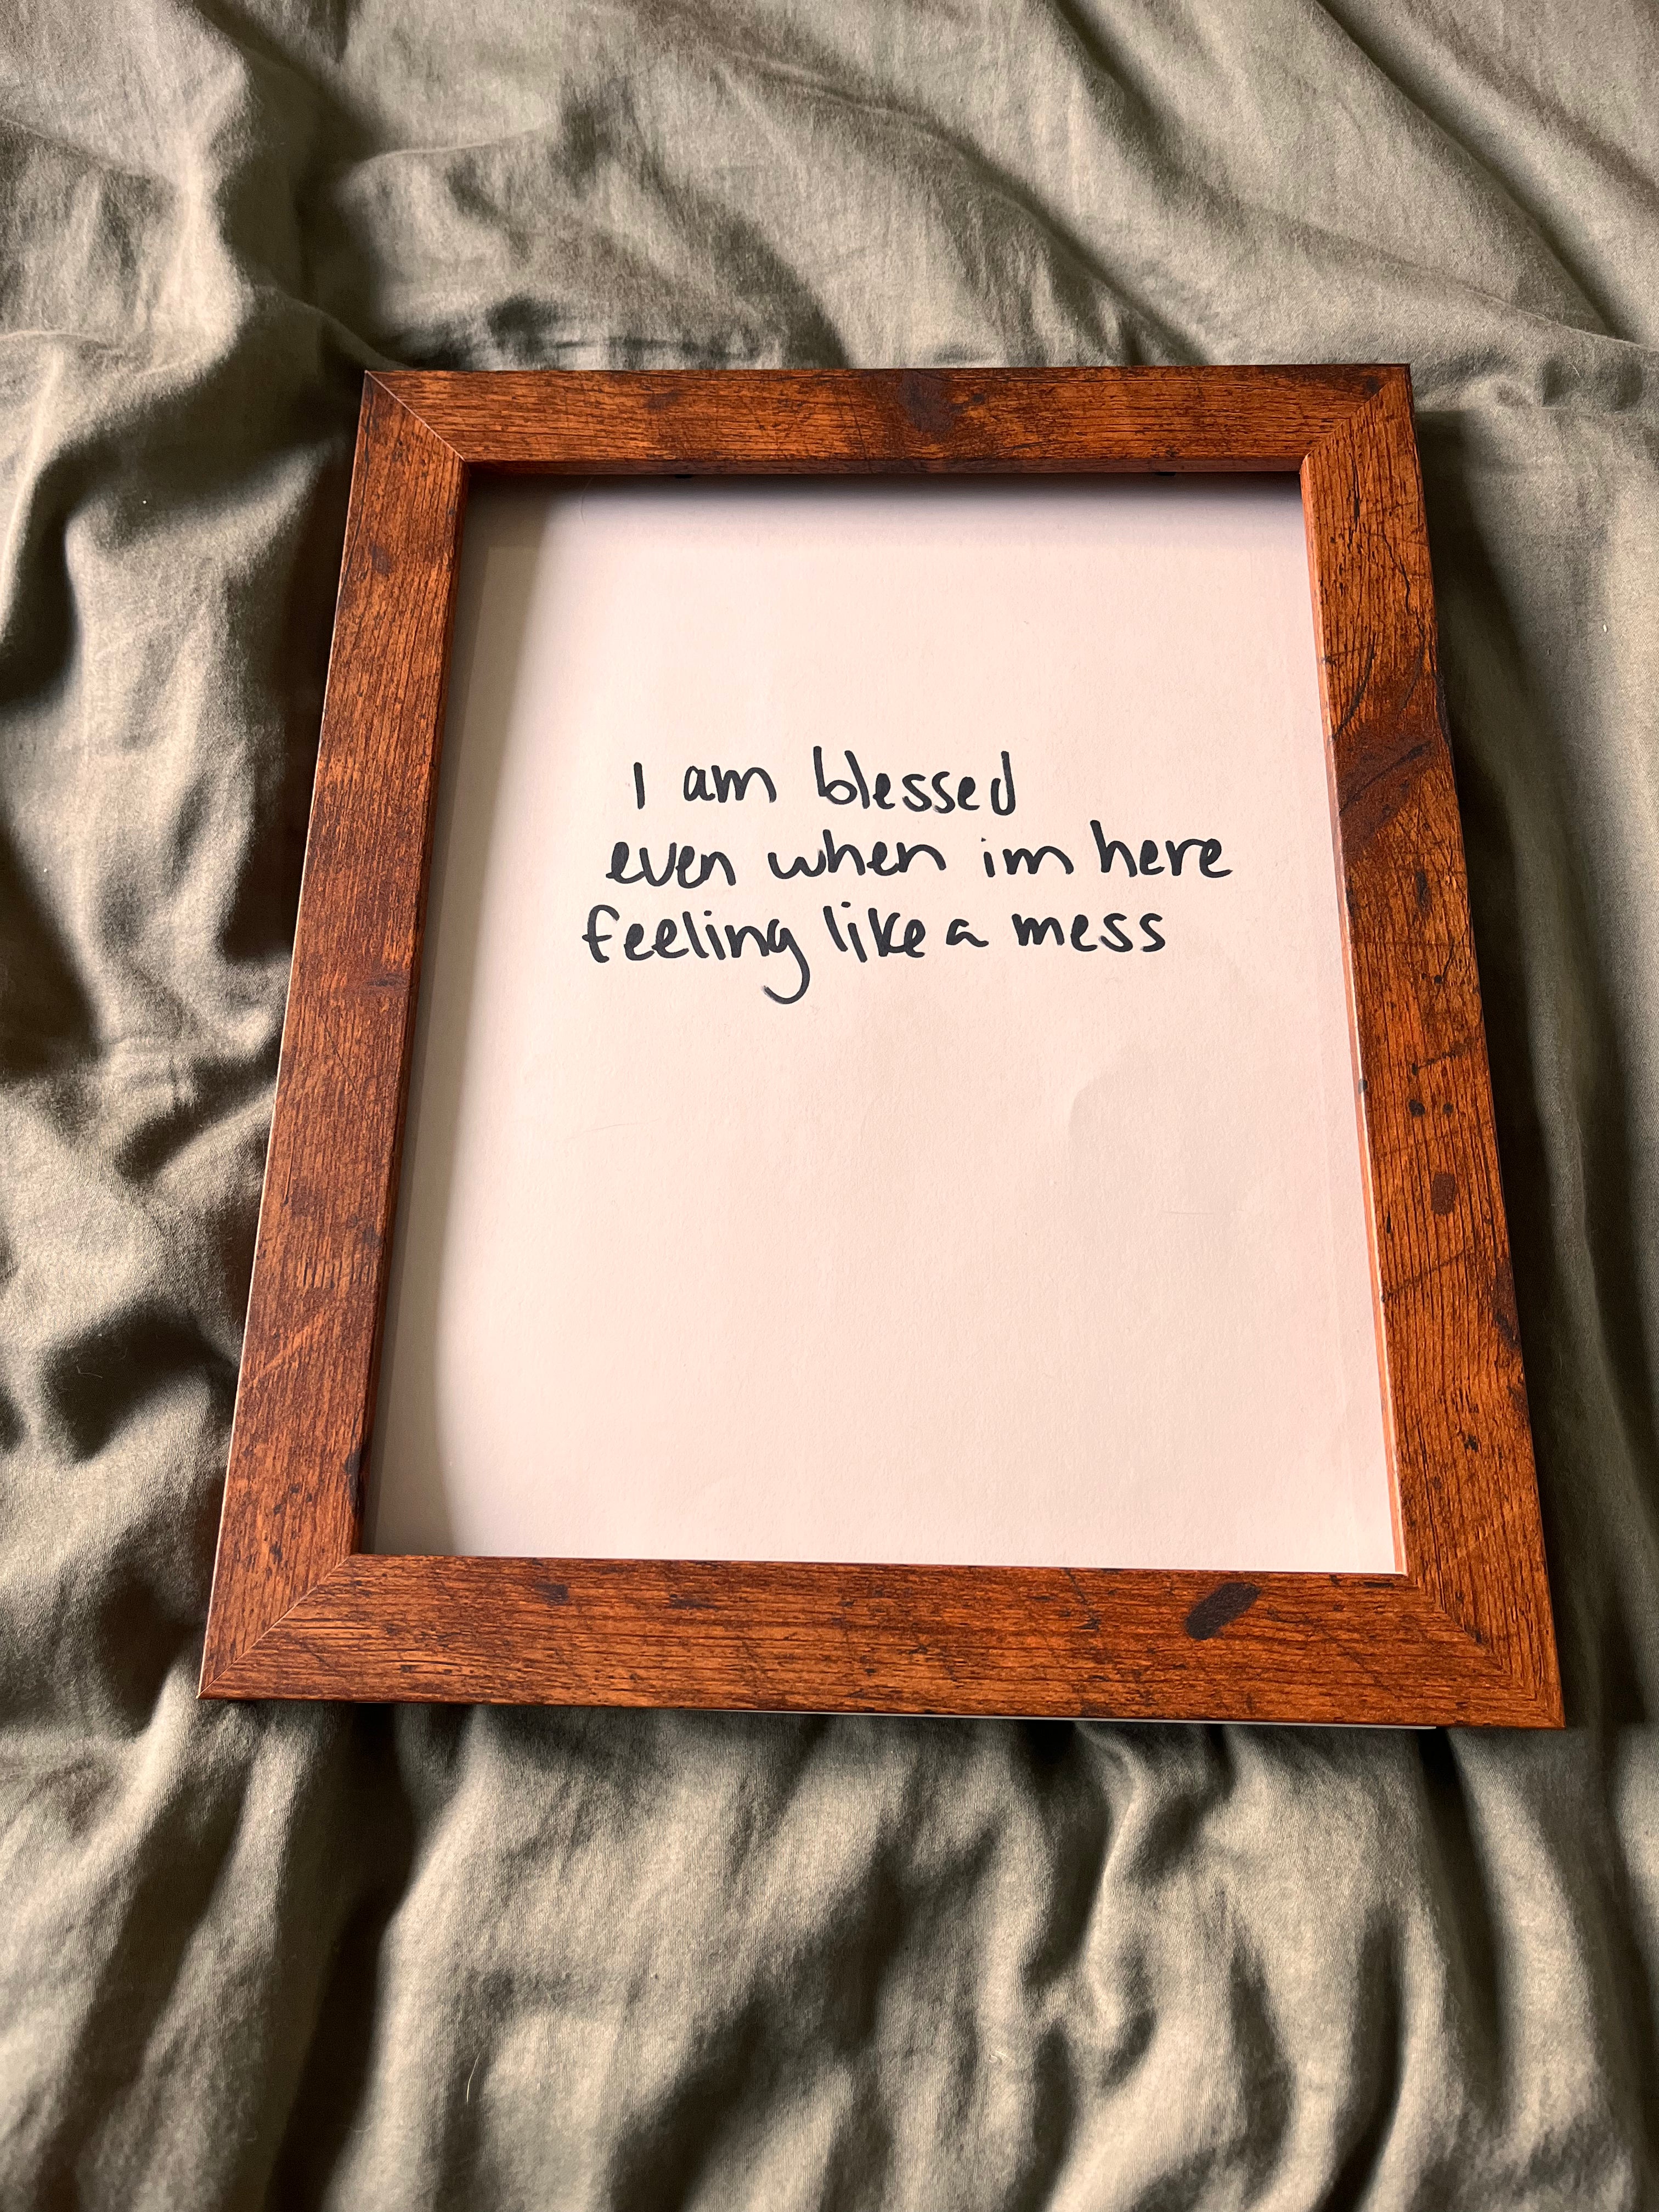 I am blessed
even when im here
feeling like a mess